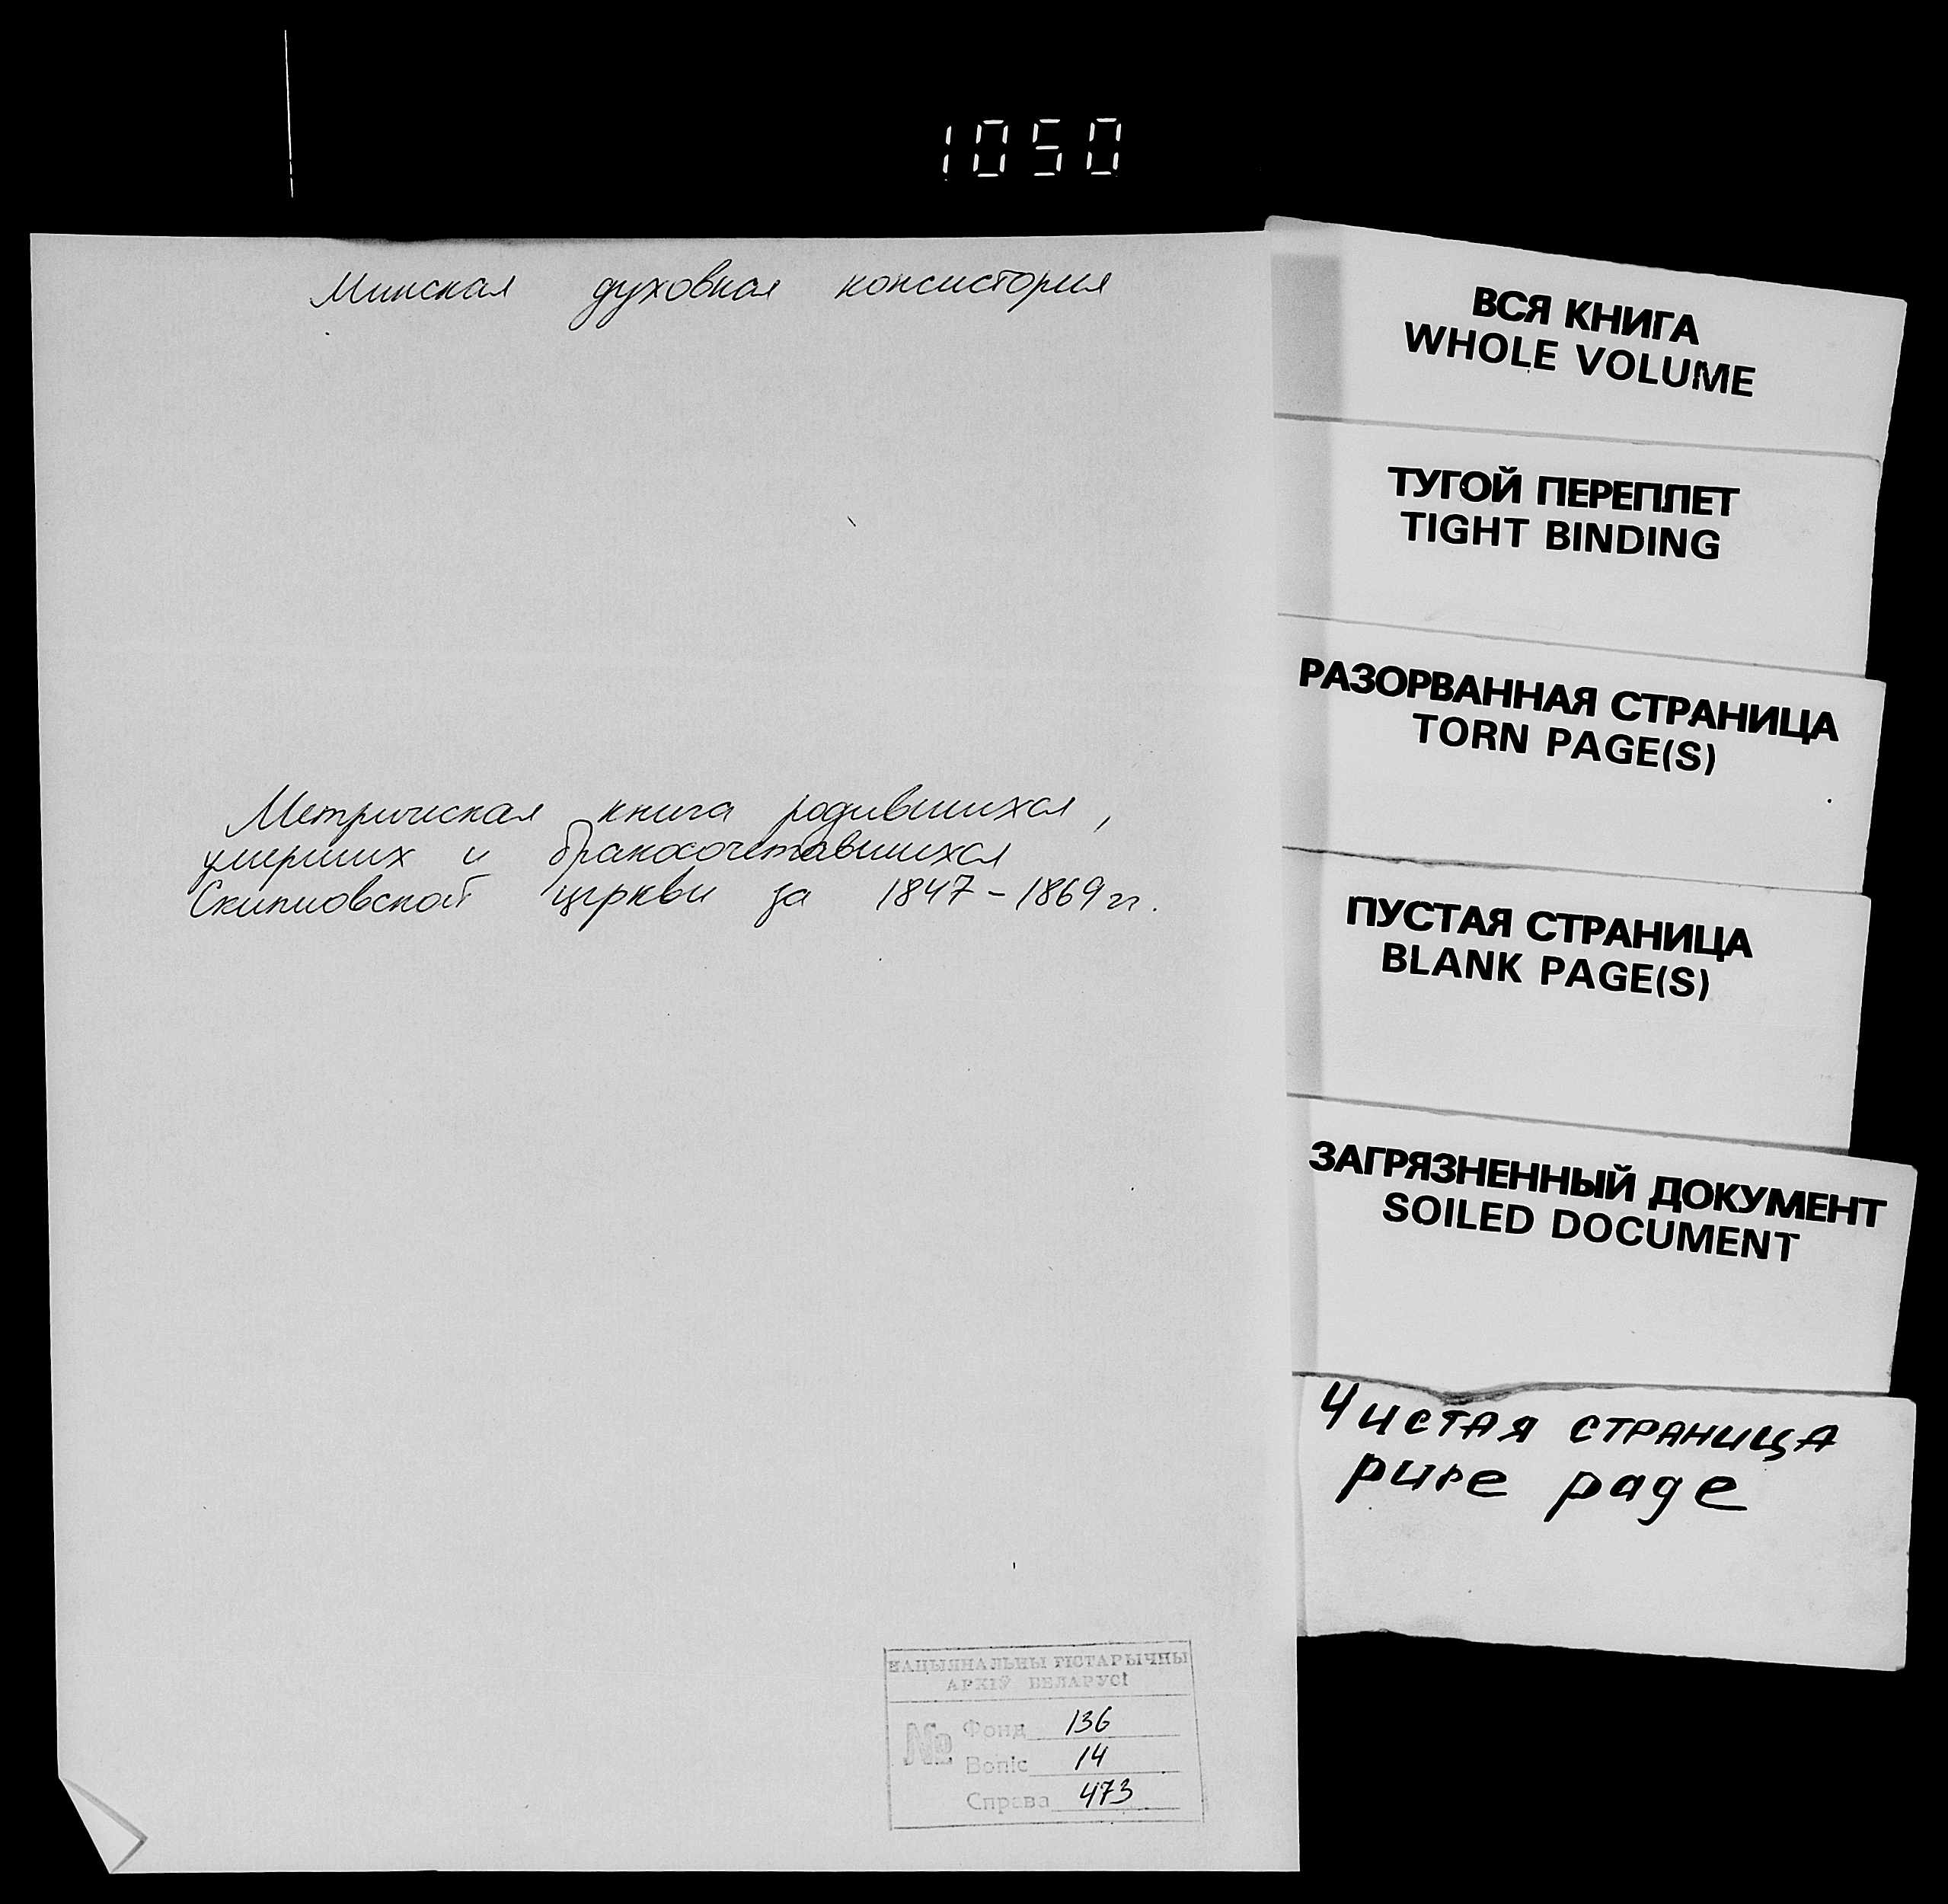 1050
Минская духовная консистория
Метрическая книга родившихся,
умерших и бракосочетавшихся
церкви за 1847-1869 гг.
НАЦЫЯНАЛЬНЫ ГІСТАРЫЧНЫ
АРХІЎ БЕЛАРУСІ
№
Фонд 136
Вопіс 14
Справа 473
ВСЯ КНИГА
WHOLE VOLUME
ТУГОЙ ПЕРЕПЛЕТ
TIGHT BINDING
РАЗОРВАННАЯ СТРАНИЦА
TORN PAGE(S)
ПУСТАЯ СТРАНИЦА
BLANK PAGE(S)
ЗАГРЯЗНЕННЫЙ ДОКУМЕНТ
SOILED DOCUMENT
Чистая страница
pure page